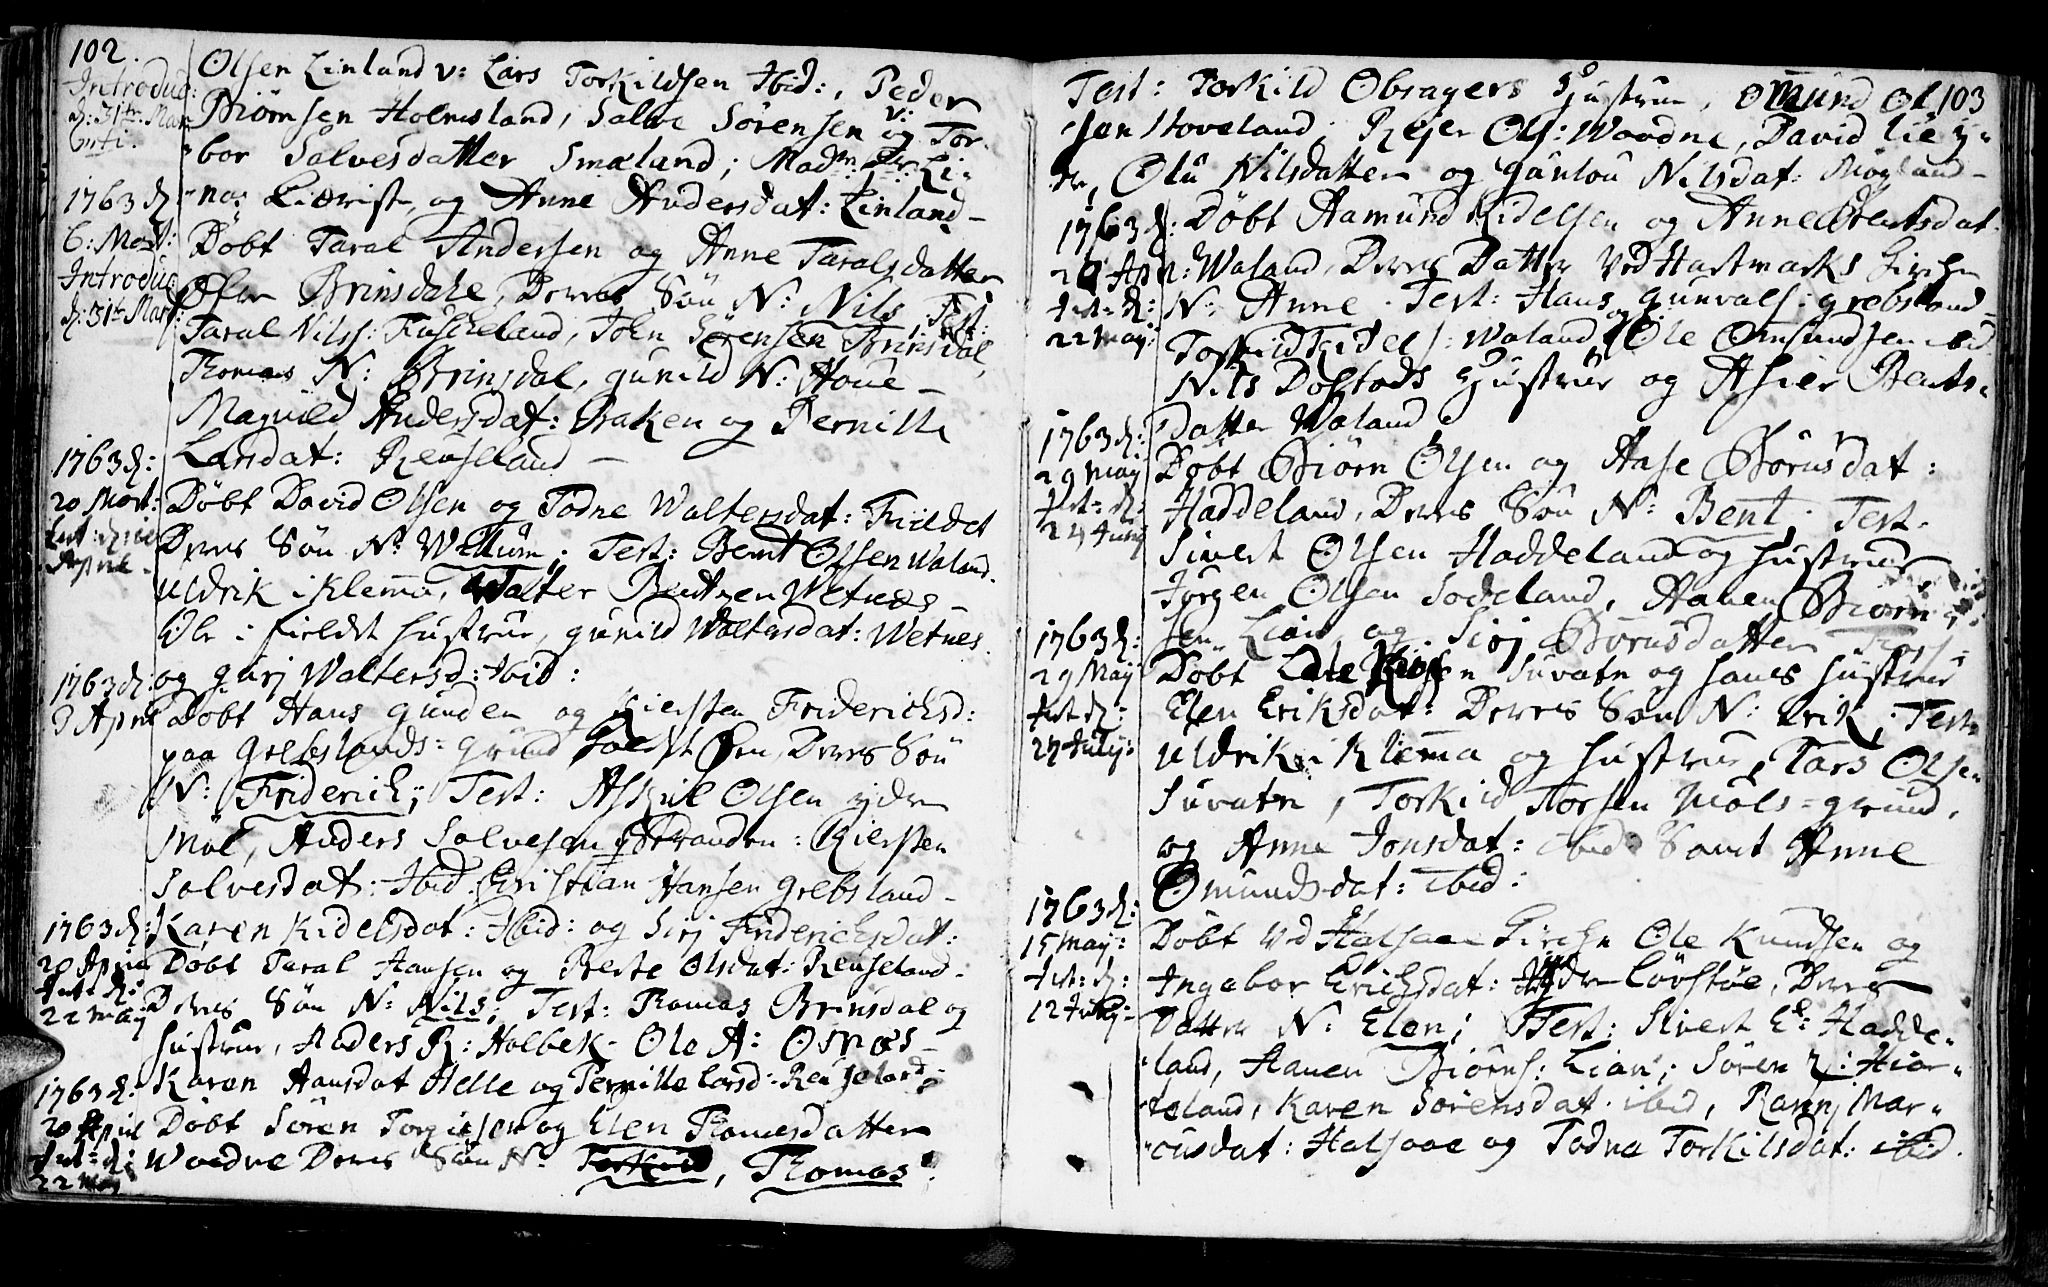 102.
Introduc:
d: 31te Mar
Olsen Linland v: Lars Torkildsen Ibid:, Peder
Biørnsen Holmesland, Salve Sørensen og Tor-
bor Salvesdatter Smæland; Mad:
og Anne Andersdat: Linland
1763 d:
6: Mart:
Introduc:
d: 31te Mart:
Døbt Taral Andersen og Anne Taralsdatter
Brinsdale, Deres Søn N: Nils, Test:
Taral Nilss: Fuscheland, John Sørensen Brinsdal,
Thomas N: Brinsdal, Gunild N: Houe
Magnild Andersdat: Braken og Pernille
Larsdat: Reuseland
1763 d:
20 Mart:
Døbt David Olsen og Todne Woltersdat: Fieldet
Deres Søn N: Willum; Test: Bent Olsen Waland.
Uldrik i Klemma, Walter Bentsen Wetnes
Ole i Fieldet Hustrue, Gunild Woltersdat: Wetnes
og Gurj Waltersd: Ibid:
1763 d:
3 April
Døbt Hans Gunden og Kiersten Friderichsd:
paa Grebslands-Grund Deres Søn
N: Friderich; Test: Olsen ydre
Møl, Anders Salvesen Stranden: Kiersten
Salvesdat: Ibid: Christian Hansen Grebsland
Karen Kidelsdat: Ibid: og Sirj Friderichsdat:
1763 d:
20 April
Int: d:
22 May
Døbt Taral Hansen og Berte Olsdat: Reuseland
Deres Søn N: Nils; Test: Thomas Brinsdal og
Hustrue, Anders R: Holbek. Ole A: Osnes
Karen Hansdat Helle og Pernille Larsd: Reuseland
1763 d:
20 April
Int: d:
22 May
Døbt Søren Torgiesen og Elen Thomesdatter
Woedne Deres Søn N: Torkild, Thomas:
103
Test: Torkild Obsagers Hustrue, Omund Ol-
sen Hoveland; Rejer Ols: Woodne, David
Olu Nilsdatter og Gunlou Nilsdat:
1763 d:
Int: d:
22 May:
Døbt Aamund Kidelsen og Anne Bentsdat.
Waland, Deres Datter Ved Hartmarks Kirche
N: Anne. Test: Hans Gunvals: Grebsland
Torkild Kidels: Waland og Ole Omundsen ibid
Nils Dolstads Hustrue og Asier Bents-
Datter Waland.
1763 d:
29 May
Int: d:
24 Juny
Døbt Biørn Olsen og Aase Børnsdat:
Haddeland, Deres Søn N: Bent; Test.
Sivert Olsen Haddeland og Hustrue
Jørgen Olsen Sodeland, Haaven Biørn-
sen Lian, og Sirj Børnsdatter
1763 d:
29 May
Int d:
24 July:
Døbt Suvatn og hans Hustrue
Elen Eriksdat: Deres Søn N: Erik; Test:
Uldrik i Klemma og Hustrue, Tars Olsen
Suvatn, Torkild Torsen Møls-Grund,
og Anne Jonsdat: ibid: Samt Anne
Omundsdat: ibid:
1763 d:
15 May:
Int: d:
12 July:
Døbt Ved Halsaae Kirche Ole Knudsen og
Ingebor Erichsdat: Løvstøe, Deres
Datter N: Elen; Test: Sivert E: Hadde-
land, Haaven Biørns: Lian; Søren R: Hior-
teland, Karen Sørensdat. ibid, Rannj Mar-
cusdat: Halsaae og Todne Torkilsdat: ibid.